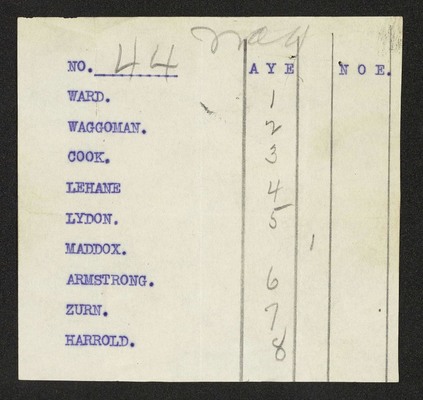 May
NO. 44 AYE NOE.
WARD. 1
WAGGOMAN. 2
COOK. 3
LEHANE 4
LYDON. 5
MADDOX. 1
ARMSTRONG. 6
ZURN. 7
HARROLD. 8